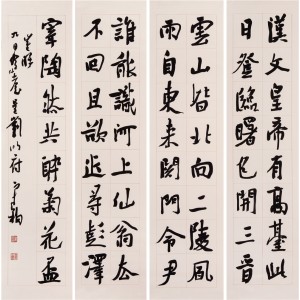 漢文皇帝有高臺此
日登臨曙色開三晉
雲山皆北向二陵風
雨自東來關門令尹
誰能識河上仙翁去
不回且欲近尋彭澤
宰陶然共醉菊花盃
崔曙
九日登仙臺呈劉明府 尹默